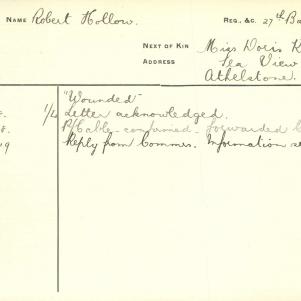 NAME Robert Hollow. REG., &C. 27th Ba
NEXT OF KIN Miss Doris K
ADDRESS Sea View
Athelstone.
"Wounded"
1/4 Letter acknowledged.
P/Cable confirmed. Forwarded
9 Reply from Commrs. Information se